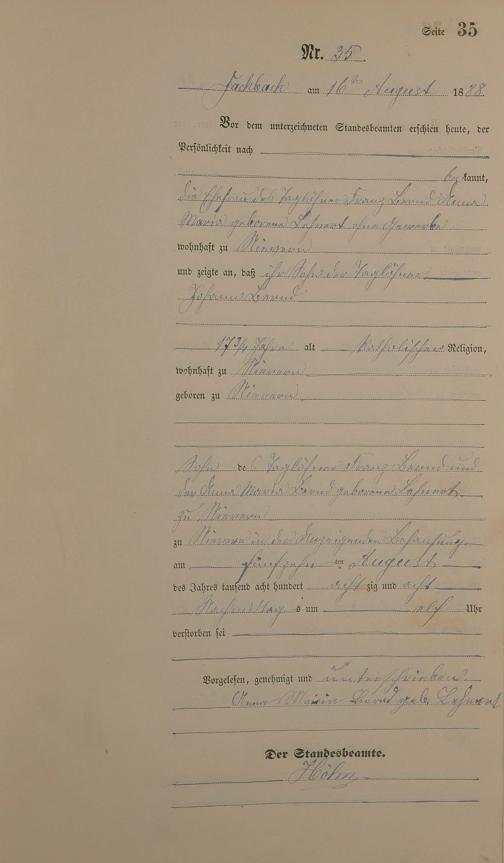 Seite 35
Nr. 35.
Fachbach am 16ten August 1888.
Vor dem unterzeichneten Standesbeamten erschien heute, der
Persönlichkeit nach
be kannt,
die Ehefrau des Taglöhner Franz Bernd Anna
Maria geborene Lehnert ohne Gewerbe
wohnhaft zu Nievern
und zeigte an, daß ihr Sohn der Taglöhner
Johann Bernd
17 3/4 Jahre alt katholischer Religion,
wohnhaft zu Nievern
geboren zu Nievern
Sohn des Taglöhner Franz Bernd und
der Anna Maria Bernd geborene Lehnert
zu Nievern
zu Nievern in der Anzeigenden Behausung
am fünfzehn ten August
des Jahres tausend acht hundert acht zig und acht
Nachmittag s um elf Uhr
verstorben sei
Vorgelesen, genehmigt und unterschrieben
Anna Maria Bernd geb. Lehnert
Der Standesbeamte.
Höhn